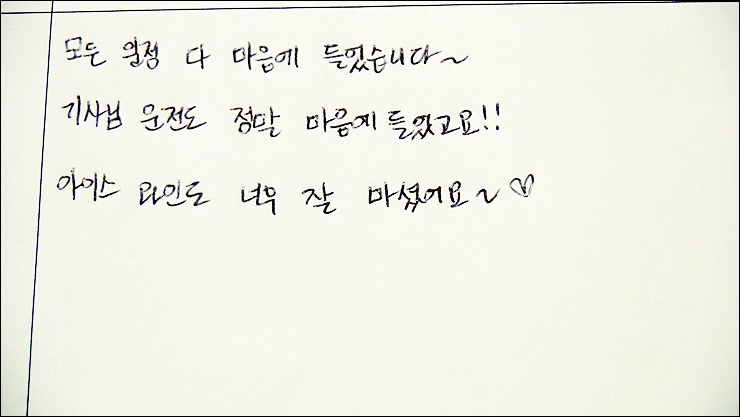 모든 일정 다 마음에 들었습니다~
기사님 운전도 정말 마음에 들었고요!!
아이스 와인도 너무 잘 마셨어요~♡